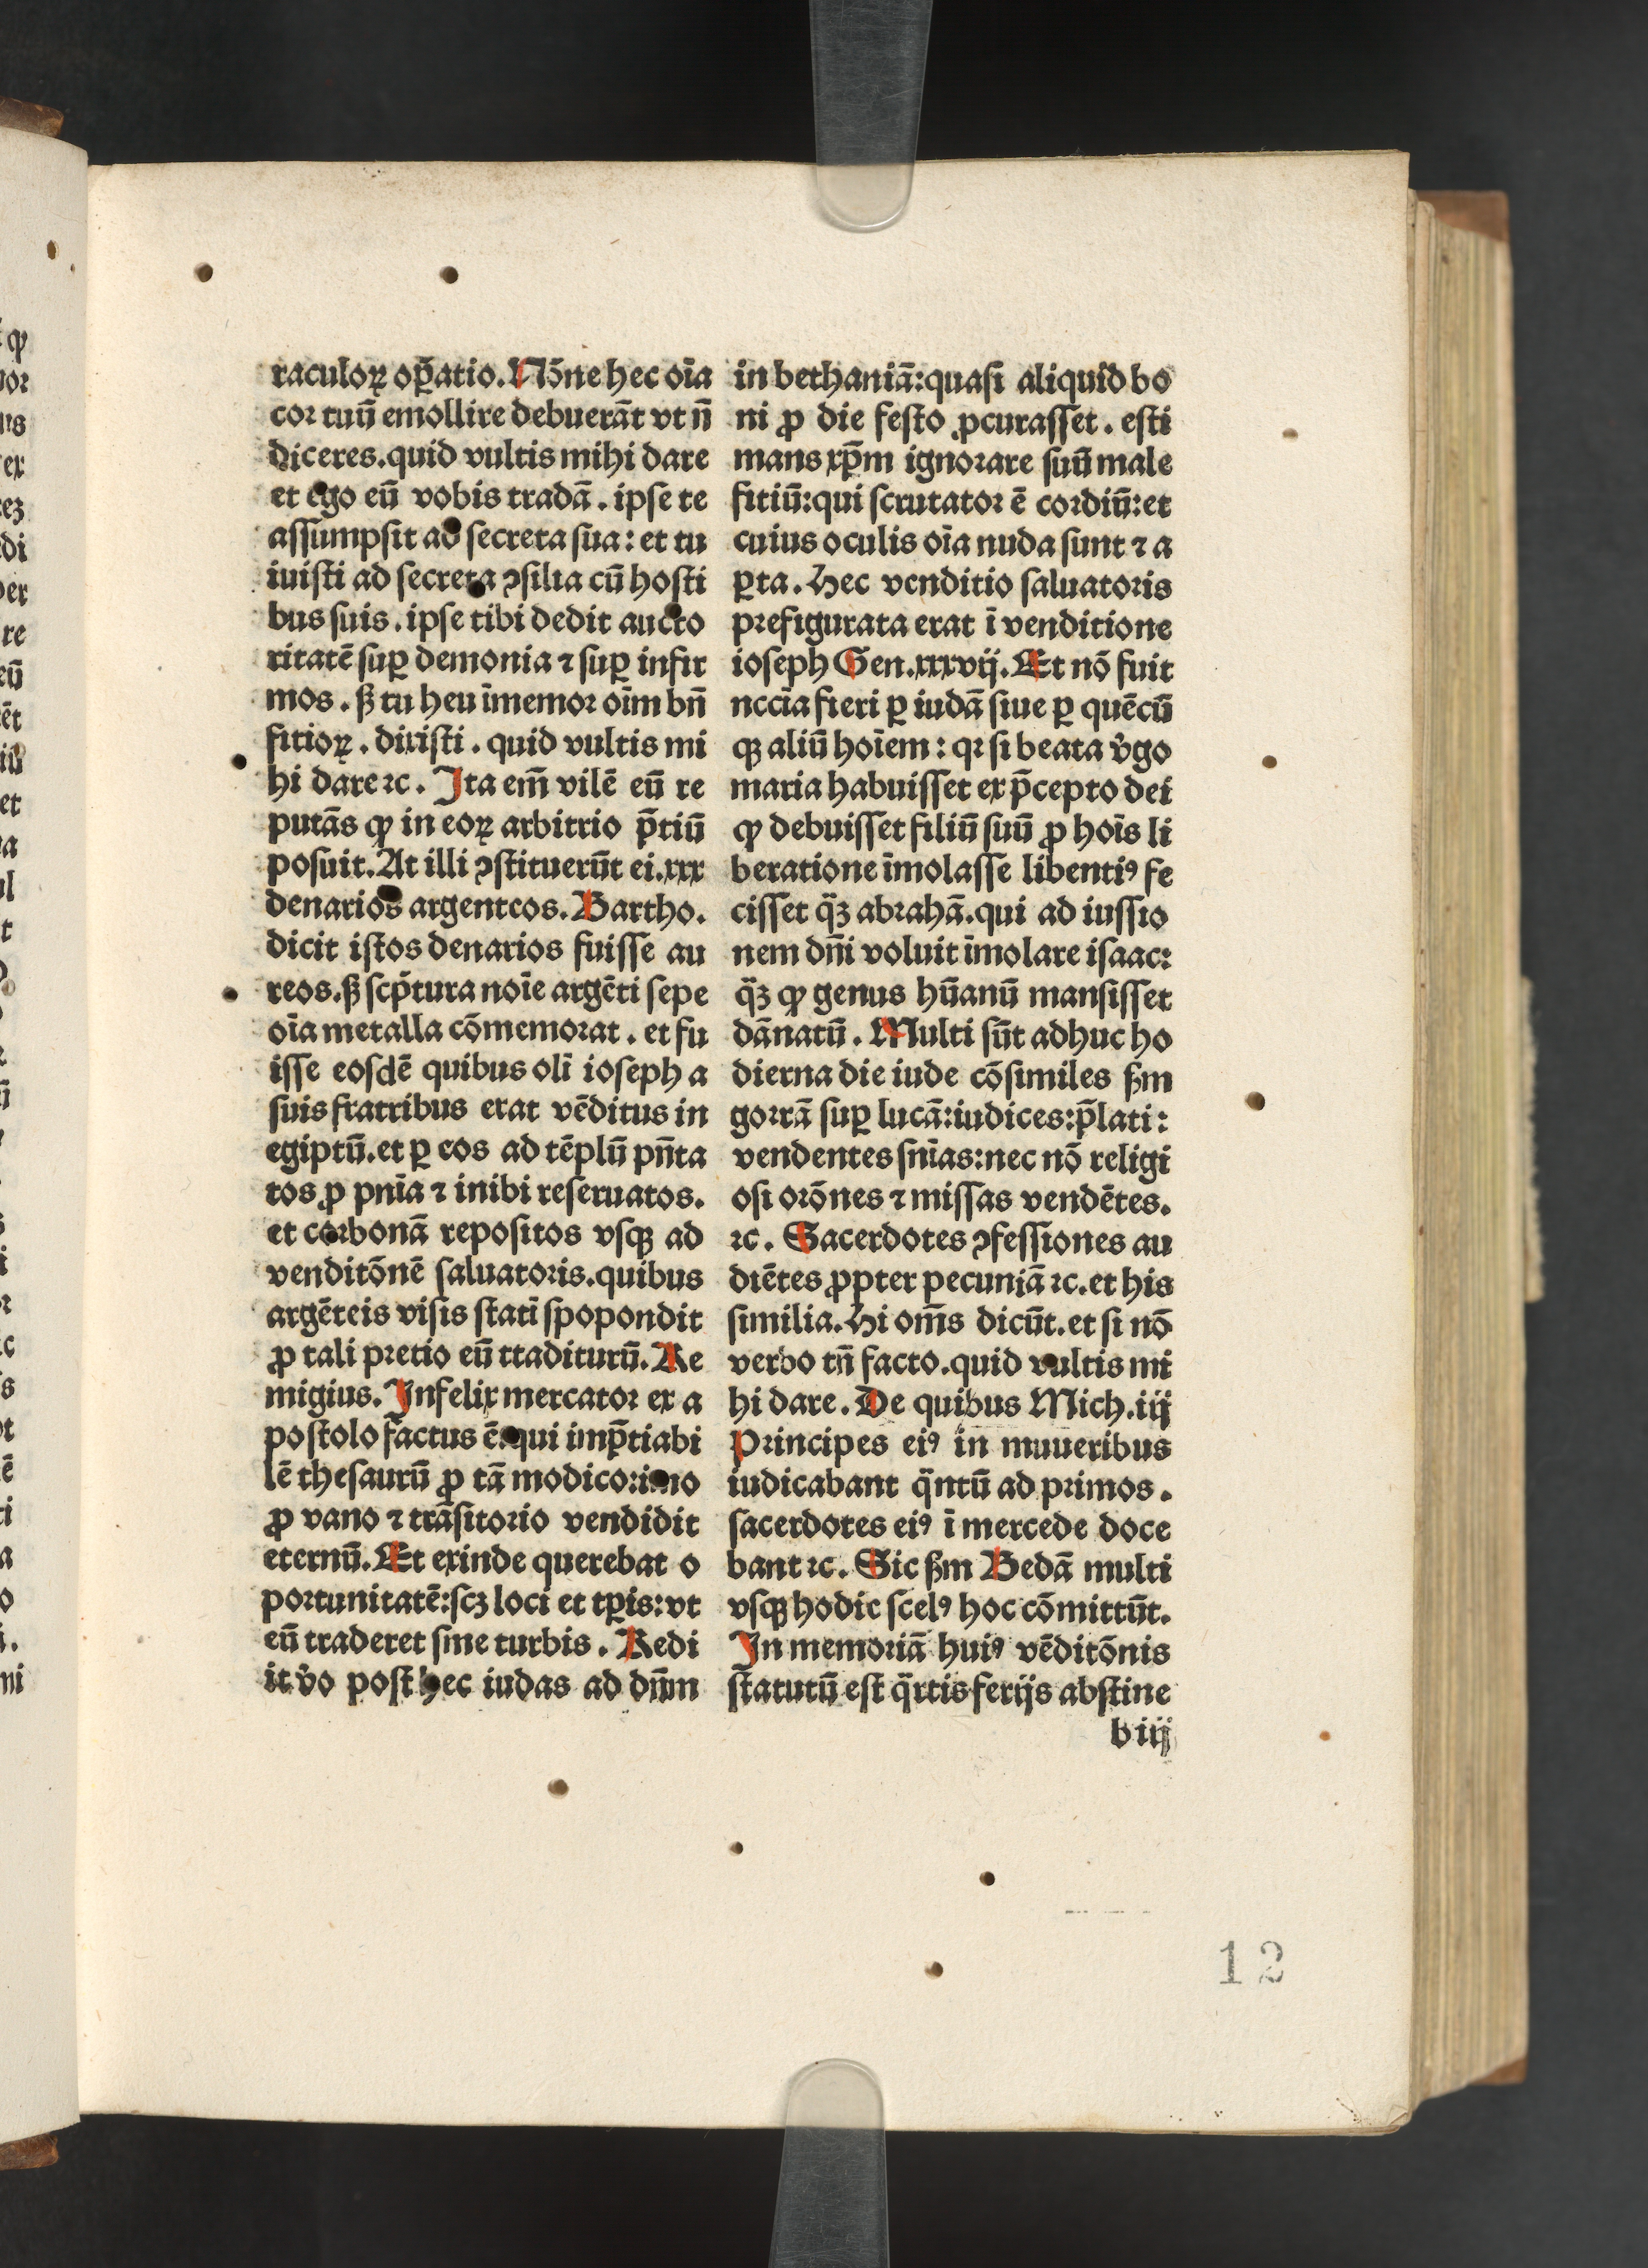 raculoꝝ oꝑatio. Nōne hec oīa
cor tuū emollire debuerāt vt n̄
diceres. quid vultis mihi dare
et ego eū vobis tradā. ipse te
assumpsit ad secreta sua: et tu
iuisti ad secreta ꝯsilia cū hosti
bus suis. ipse tibi dedit aucto
ritatē suꝑ demonia ⁊ suꝑ infir
mos. ß tu heu īmemor oīm bn̄
fitioꝝ. dixisti. quid vultis mi
hi dare ⁊c. Ita em̄ vilē eū re
putās ꝙ in eoꝝ arbitrio p̄tiū
posuit. At illi ꝯstituerūt ei. xxx
denarios argenteos. Bartho.
dicit istos denarios fuisse au
reos. ß scp̄tura noīe argēti sepe
oīa metalla cōmemorat. et fu
isse eosdē quibus olī ioseph a
suis fratribus erat vēditus in
egiptū. et ꝑ eos ad tēplū pn̄ta
tos ꝓ pnīa ⁊ inibi reseruatos.
et corbonā repositos vsqꝫ ad
venditōnē saluatoris. quibus
argēteis visis statī spopondit
ꝓ tali pretio eū ttaditurū. Re
migius. Infelix mercator ex a
postolo factus ē. qui imp̄tiabi
lē thesaurū ꝓ tā modico: imo
ꝓ vano ⁊ trāsitorio vendidit
eternū. Et exinde querebat o
portunitatē: scꝫ loci et tꝑis: vt
eū traderet sine turbis. Redi
it v̊o post hec iudas ad dn̄m
in bethaniā: quasi aliquid bo
ni ꝓ die festo ꝓcurasset. esti
mans xp̄m ignorare suū male
fitiū: qui scrutator ē cordiū: et
cuius oculis oīa nuda sunt ⁊ a
ꝑta. Hec venditio saluatoris
prefigurata erat ī venditione
ioseph Gen. xxxvij. Et nō fuit
nccīa fieri ꝑ iudā siue ꝑ quēcū
qꝫ aliū hoīem: qꝛ si beata v̊go
maria habuisset ex p̄cepto dei
ꝙ debuisset filiū suū ꝓ hoīs li
beratione īmolasse libentiꝰ fe
cisset q̈ꝫ abrahā. qui ad iussio
nem dn̄i voluit īmolare isaac:
q̈ꝫ ꝙ genus hūanū mansisset
dānatū. Multi sūt adhuc ho
dierna die iude cōsimiles ßm
gorrā suꝑ lucā: iudices: p̄lati:
vendentes snīas: nec nō religi
osi orōnes ⁊ missas vendētes.
⁊c. Sacerdotes ꝯfessiones au
diētes ꝓpter pecuniā ⁊c. et his
similia. Hi om̄s dicūt. et si nō
verbo tn̄ facto. quid vultis mi
hi dare. De quibus Mich. iij
Principes eiꝰ in muueribus
iudicabant q̈ntū ad primos.
sacerdotes eiꝰ ī mercede doce
bant ⁊c. Sic ßm Bedā multi
vsqꝫ hodie scelꝰ hoc cōmittūt.
In memoriā huiꝰ vēditōnis
statutū est q̈rtis ferijs abstine
b iij
12